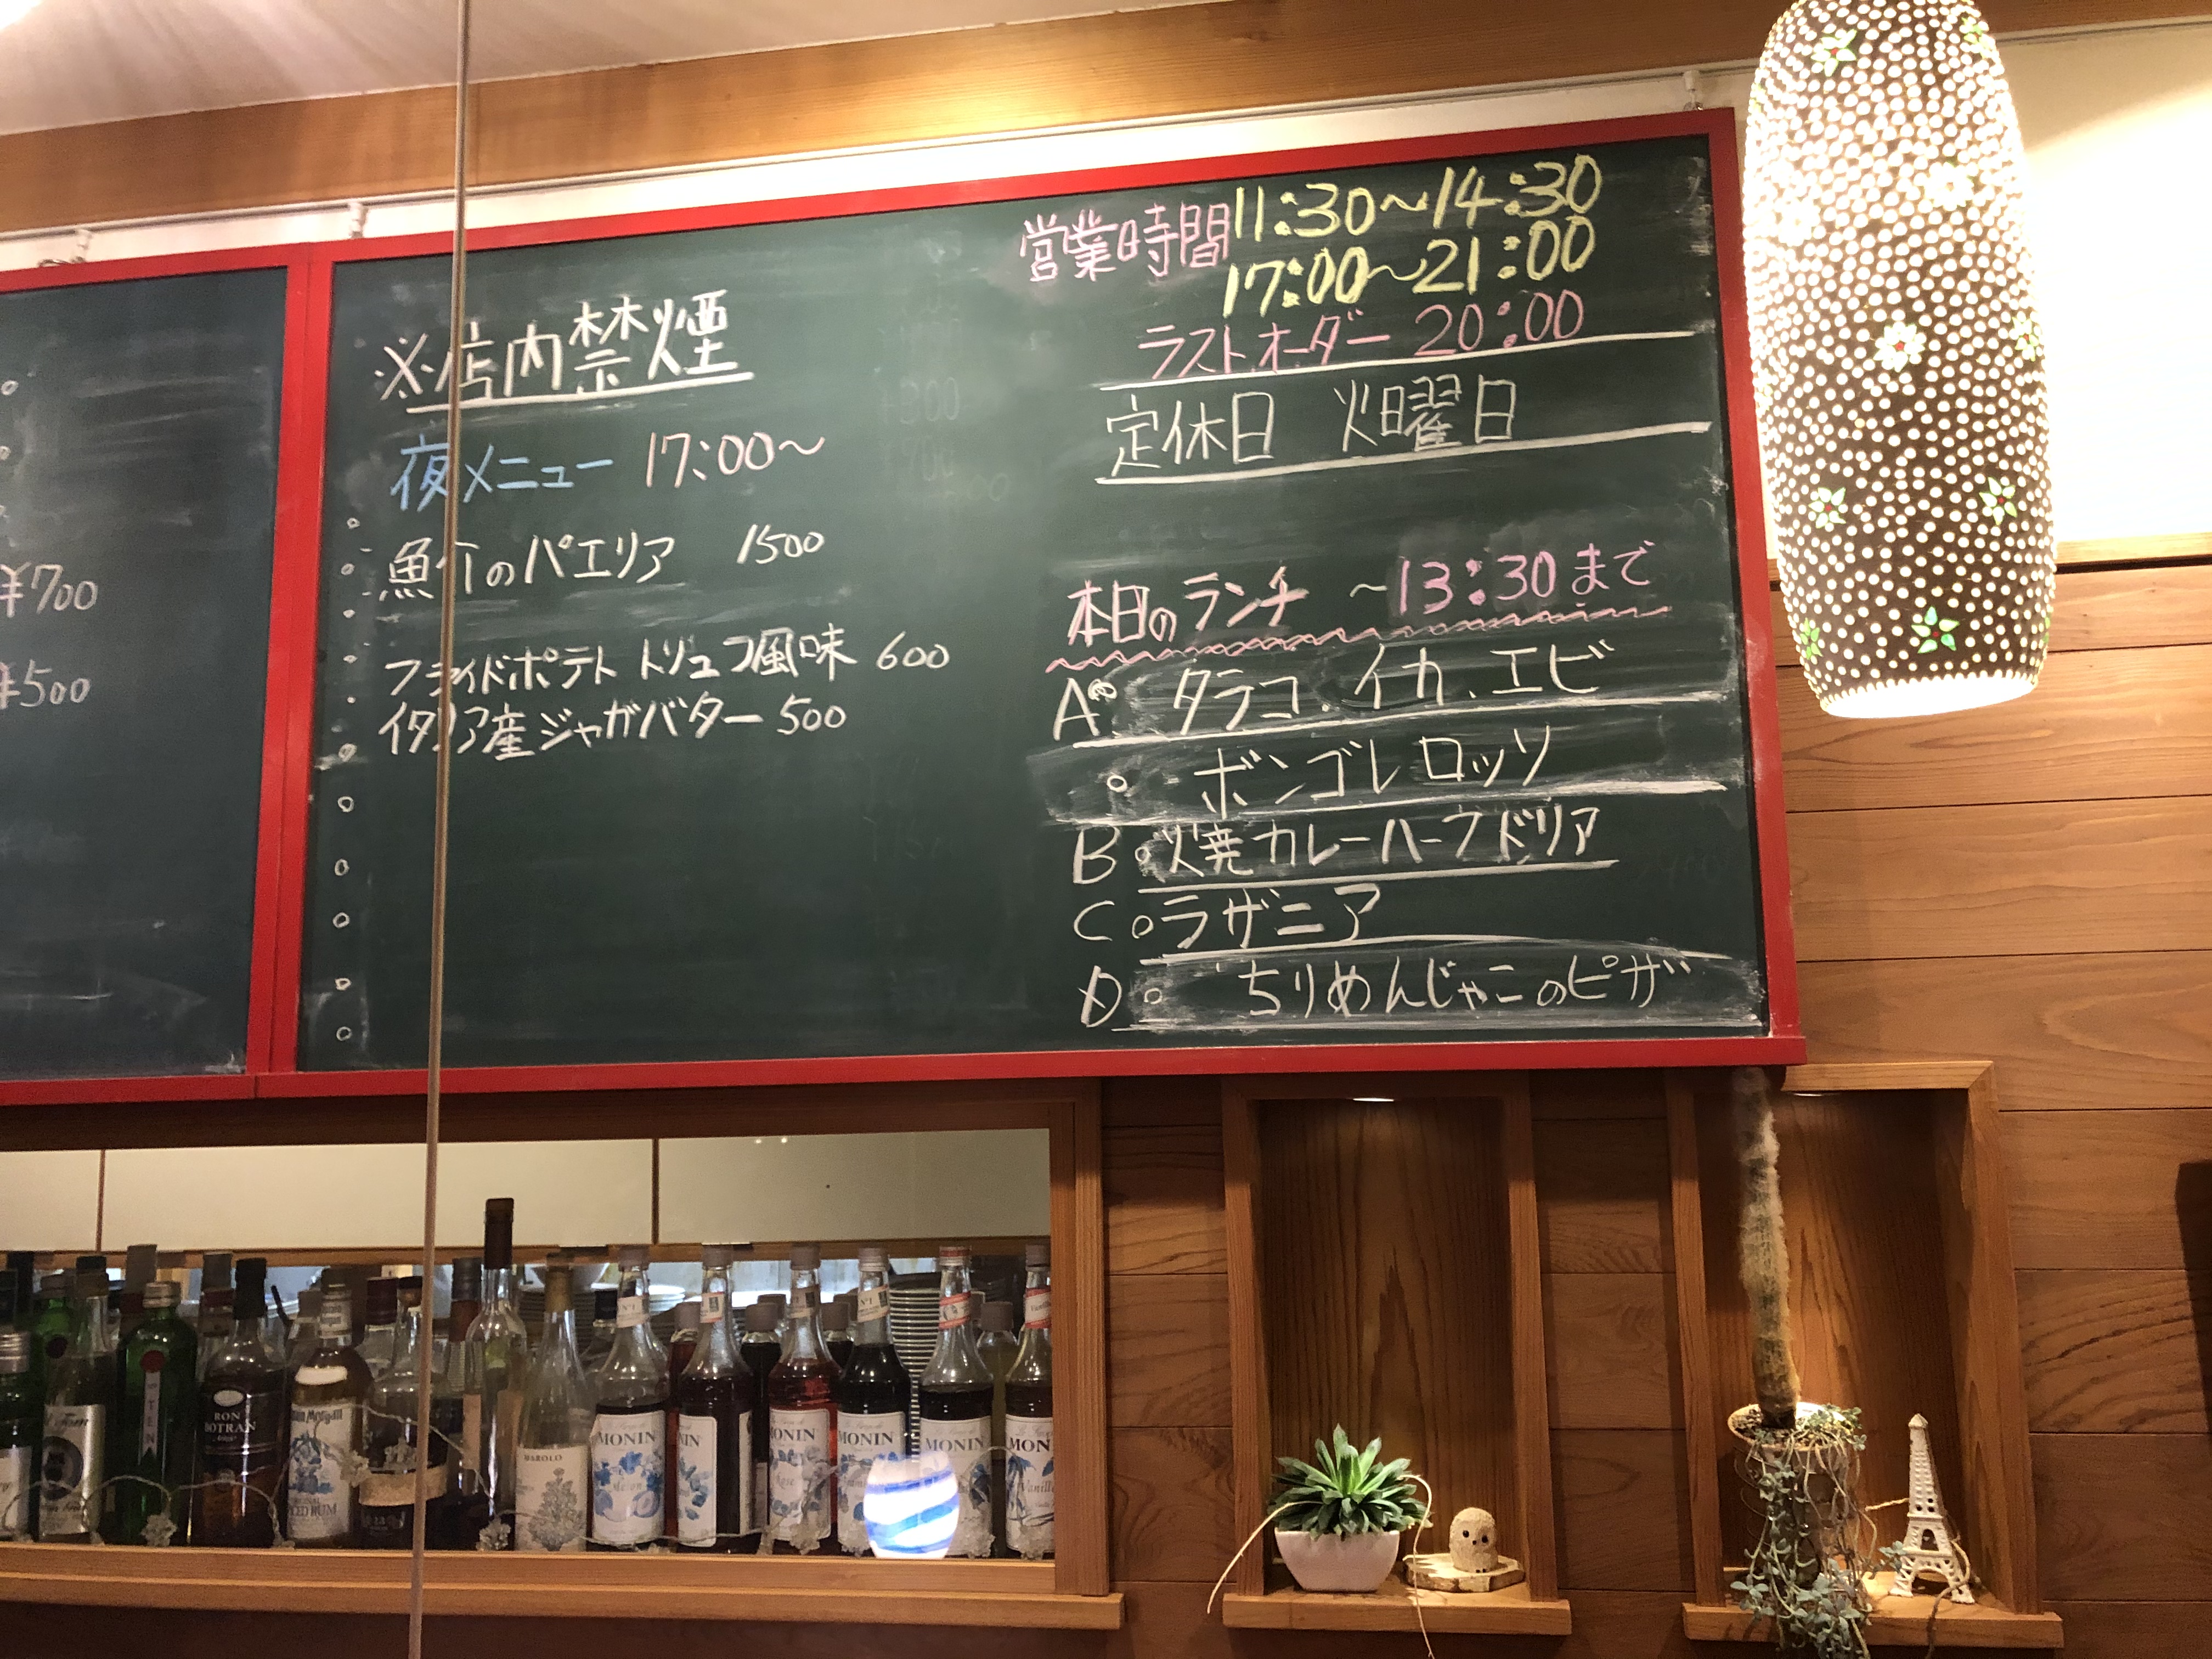 ¥700
¥500
※店内禁煙
夜メニュー 17:00～
魚介のパエリア 1500
フライドポテト トリュフ風味 600
イタリア産ジャガバター 500
営業時間 11:30～14:30
17:00～21:00
ラストオーダー 20:00
定休日 火曜日
本日のランチ ～13:30まで
A。 タラコ、イカ、エビ
。 ボンゴレ ロッソ
B。焼カレーハーフドリア
C。ラザニア
D。 ちりめんじゃこのピザ
TEN
RON
BOTRAN
BAROLO
MONIN
MONIN
MONIN
MONIN
MONIN
Vanilla